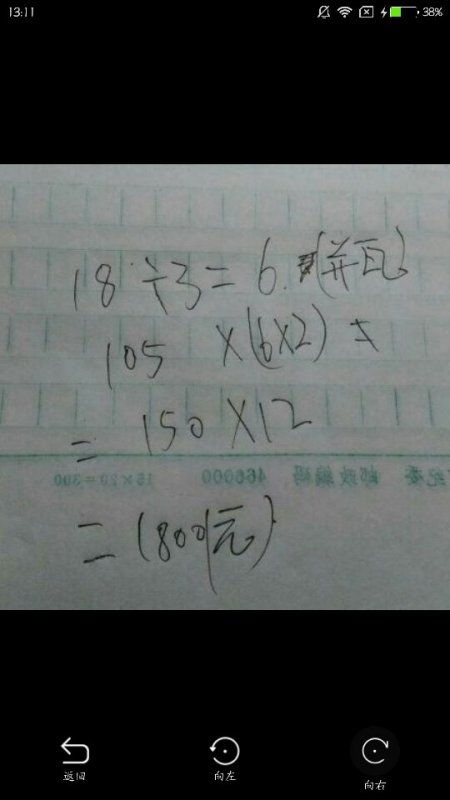 13:11 38%
18÷3=6.(瓶)
105 ×(6×2) =
=150×12
邮政编码 466000 15×20=300
=1800(元)
返回 向左 向右